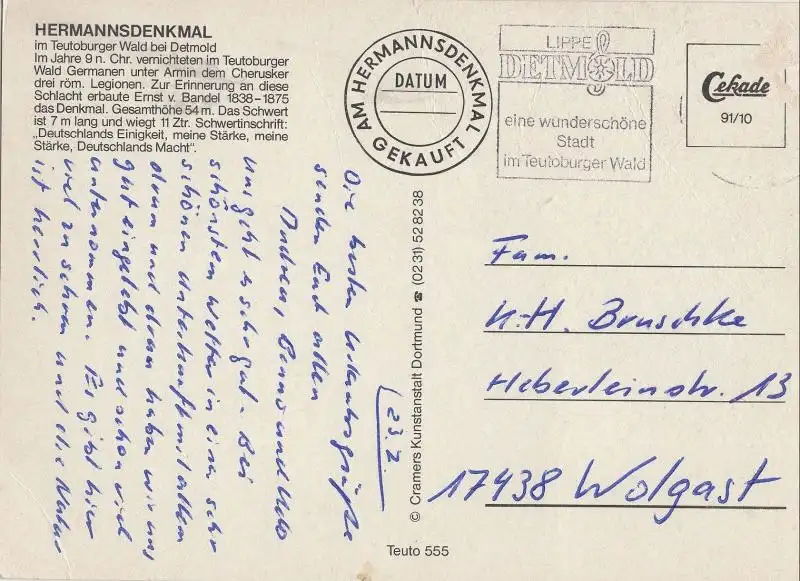 HERMANNSDENKMAL
im Teutoburger Wald bei Detmold
Im Jahre 9 n. Chr. vernichteten im Teutoburger
Wald Germanen unter Armin dem Cherusker
drei röm. Legionen. Zur Erinnerung an diese
Schlacht erbaute Ernst v. Bandel 1838–1875
das Denkmal. Gesamthöhe 54 m. Das Schwert
ist 7 m lang und wiegt 11 Ztr. Schwertinschrift:
„Deutschlands Einigkeit, meine Stärke, meine
Stärke, Deutschlands Macht“.
AM HERMANNSDENKMAL
DATUM
GEKAUFT
LIPPE
DETMOLD
eine wunderschöne
Stadt
im Teutoburger Wald
Cekade
91/10
23.7.
Die besten Urlaubsgrüße
senden Euch allen
Andrea, Benno und
Uns geht es sehr gut. Bei
schönstem Wetter in einer sehr
schönen Unterkunft mit allem
drum und dran haben wir uns
gut eingelebt und schon viel
unternommen. Es gibt hier
viel zu schauen und die Natur
ist herrlich.
Fam.
K.-H. Bruschke
Heberleinstr. 13
17438 Wolgast
© Cramers Kunstanstalt Dortmund ☎ (0231) 528238
Teuto 555